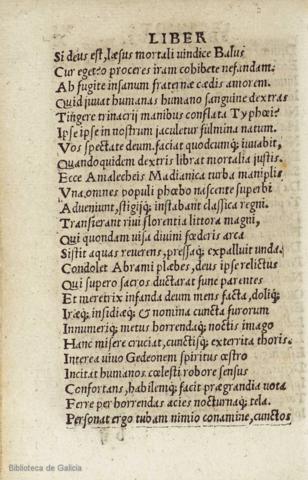 LIBER
Si deus est, læsus mortali vindice Balus
Cur egeto proceres iram cohibete nefandam:
Ah fugite insanum fraternæ cædis amorem.
Quid juvat humanas humano sanguine dextras
Tingere trinacrij manibus conflata Typhœi?
Ipse ipse in nostrum jaculetur fulmina natum.
Vos spectate deum. faciat quodcumq; iuvabit,
Quandoquidem dextris librat mortalia justis.
Ecce Amalecheis Madianica turba maniplis
Vna omnes populi phœbo nascente superbi
Adveniunt, stigijq; instabant classica regni.
Transierant rivi slorentia littora magni,
Qui quondam visa divini fœderis arca
Sistit aquas reverens, pressaq; expalluit unda.
Condolet Abrami plæbes, deus ipse relictus
Qui supero sacros ductarat fune parentes
Et meretrix infanda deum mens facta, doliq;
Iræq; insidiæq; & nomina cuncta furorum
Innumeriq; metus horrendaq; noctis imago
Hanc misere cruciat, cunctisq; exterrita thoris.
Interea vivo Gedeonem spiritus œstro
Incitat humanos cœlesti robore sensus
Confortans, habilemq; facit prægrandia vota
Ferre per horrendas acies nocturnaq; tela.
Personat ergo tubam nimio conamine, cunctos
Biblioteca de Galicia